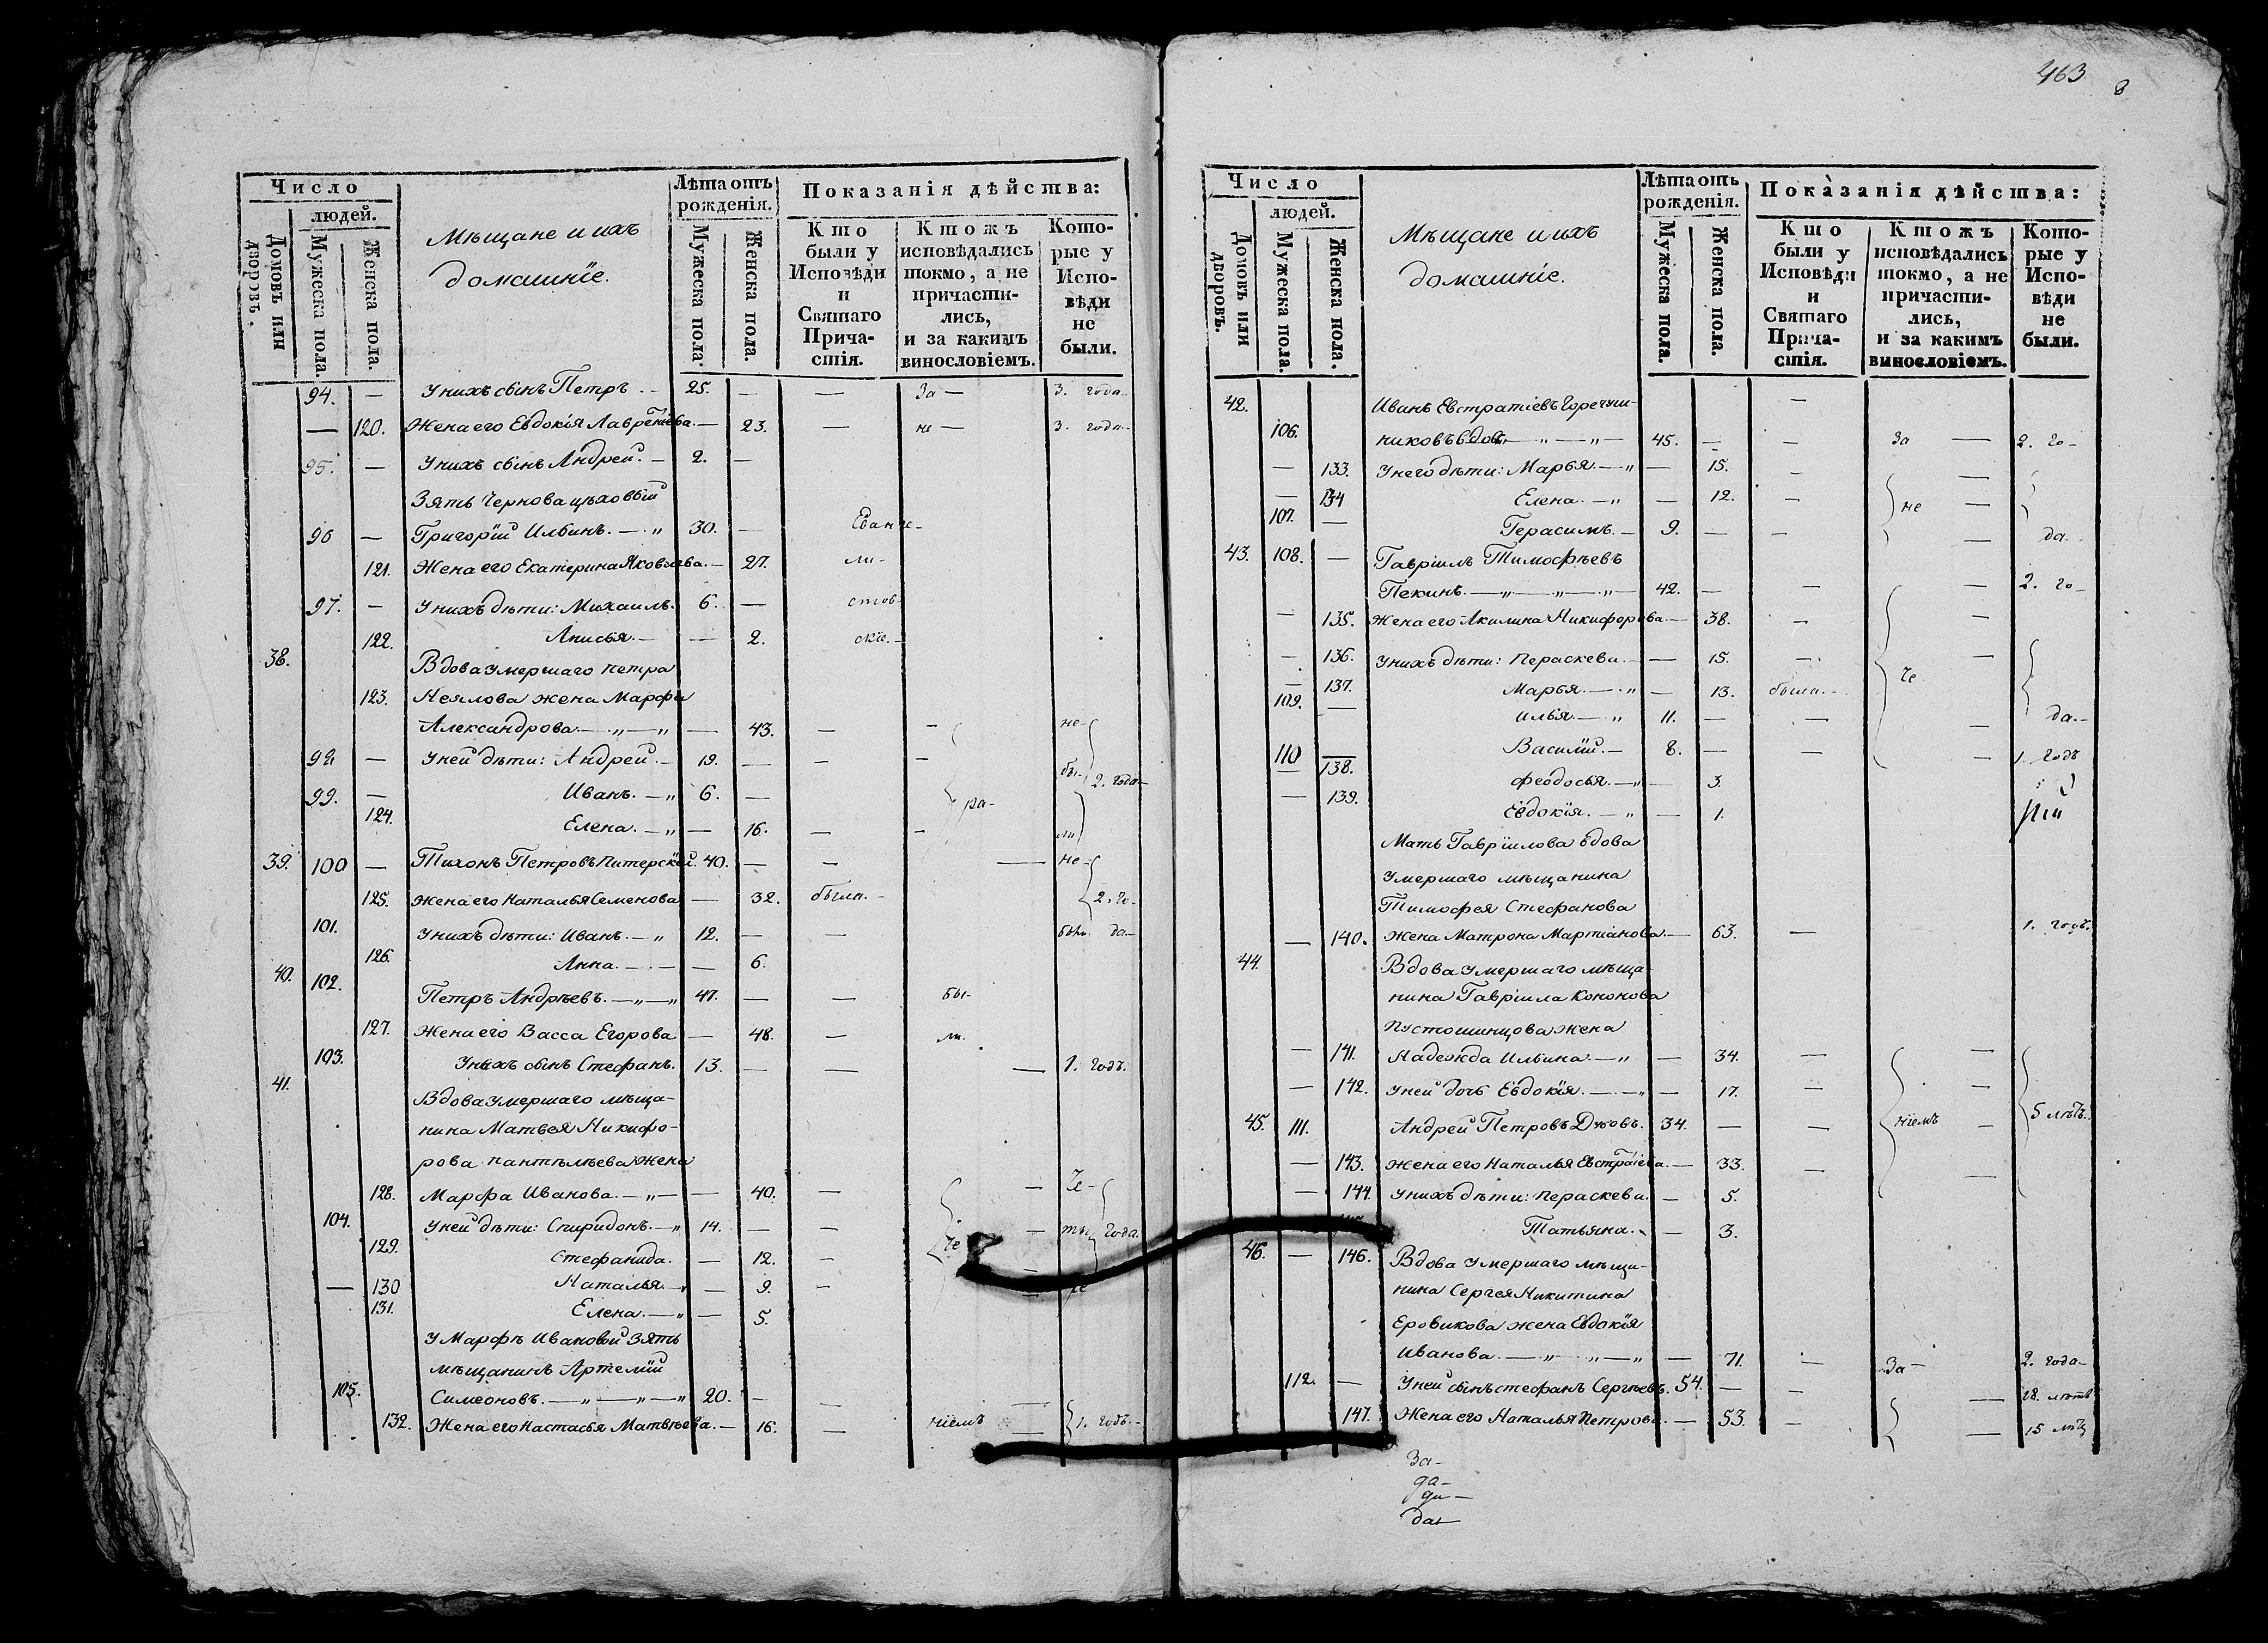 463
8
Число
людей.
Домовъ или дворовъ.
Мужеска пола.
Женска пола.
Мѣщане и ихъ
домашніе.
Лѣта отъ рожденія.
Мужеска пола.
Женска пола.
Показанія дѣйства:
Кто были у Исповѣди и Святаго Причастія.
Ктожъ исповѣдались токмо, а не причастились, и за какимъ винословіемъ.
Которые у Исповѣди не были.
94. — У нихъ сынъ Петръ — 25. — — За — 3. года
— 120. Жена его Евдокія Лаврентіева. — 23. — не — 3. года
95. — У нихъ сынъ Андрей. — 2. —
Зять Чернова цѣховый
96 — Григорій Ильинъ. — „ 30. — Еванге-
121. Жена его Екатерина Яковлева. — 27. ли-
97. — У нихъ дѣти: Михаилъ. 6. — стов-
122. Анисья. — — 2. скіе. —
38. Вдова умершаго Петра
123. Неялова жена Марфа
Александрова. — „ — „ — 43. — — не-
98 — У ней дѣти: Андрей. — 19. — — — бы- 2. года —
99. — Иванъ. — „ 6. — ра-
124. Елена. — „ — 16. — — ли
39. 100 — Тихонъ Петровъ Питерскій. 40. — — — не-
125. Жена его Наталья Семенова — 32. были. — 2. го-
101. У нихъ дѣти: Иванъ. — „ 12. — — были да —
126. Анна. — — — 6.
40. 102. Петръ Андрѣевъ. — „ — „ 47. — — бы-
127. Жена его Васса Егорова — 48. — ли.
103. У нихъ сынъ Стефанъ. 13. — — — 1. годъ.
41. Вдова умершаго мѣща-
нина Матвея Никифо-
рова Пантѣлѣева жена
128. Марфа Иванова. — „ — — 40. — —
104. У ней дѣти: Спиридонъ. — „ 14. — — — года.
129. Стефанида. — 12. —
— 130 Наталья. — „ — 9. —
131. Елена. — „ — 5.
У Марфы Ивановой зять
мѣщанинъ Артемій
105. Симеоновъ. — „ — „ — „ 20. — — —
132. Жена его Настасья Матвѣева. — 16. — ніемъ — 1. годъ. —
Число
людей.
Домовъ или дворовъ.
Мужеска пола.
Женска пола.
Мѣщане и ихъ
домашніе.
Лѣта отъ рожденія.
Мужеска пола.
Женска пола.
Показанія дѣйства:
Кто были у Исповѣди и Святаго Причастія.
Ктожъ исповѣдались токмо, а не причастились, и за какимъ винословіемъ.
Которые у Исповѣди не были.
42. Иванъ Евстратіевъ Горечуш- —
106. никовъ вдов — „ — „ — 45. — — За — 2. го-
— 133. У него дѣти: Марья. — „ — 15. — —
— 134 Елена. — „ — 12. — не —
107. — Герасимъ. — 9. — — — да.
43. 108. — Гавріилъ Тимофѣевъ
Пекинъ. — „ — „ — „ — 42. — — — 2. го-
— 135. Жена его Акилина Никифорова. — 38. — —
— 136. У нихъ дѣти: Параскева. — — 15. — —
— 137. Марья. — „ — 13. были. — че-
109. — Илья. — „ 11. — — — да. —
110 — Василій. — 8. — — — 1. годъ
— 138. Феодосья. — „ — 3.
— 139. Евдокія. — „ — 1.
Мать Гавріилова вдова
умершаго мѣщанина
Тимофея Стефанова
— 140. Жена Матрона Мартіанова. — 63. — 1. годъ.
44. Вдова умершаго мѣща-
нина Гавріила Кононова
Пустошинцова жена
— 141. Надежда Ильина. — „ — 34. — —
— 142. У ней дочь Евдокія. — — „ — 17. — —
45. 111. Андрей Петровъ Дѵбовъ. 34. — — ніемъ — 5 лѣтъ.
— 143. Жена его Наталья Евстратіева. — 33. — —
— 144. У нихъ дѣти: Параскева. — 5.
Татьяна. — — 3.
46. — 146. Вдова умершаго мѣща-
нина Сергея Никитина
Еровикова жена Евдокія
Иванова. — „ — „ — „ — 71. — За — 2. года —
112. — У ней сынъ Стефанъ Сергѣевъ. 54. — — — 18. лѣтъ
147. Жена его Наталья Петрова. — 53. — — 15 лѣтъ
За-
да-